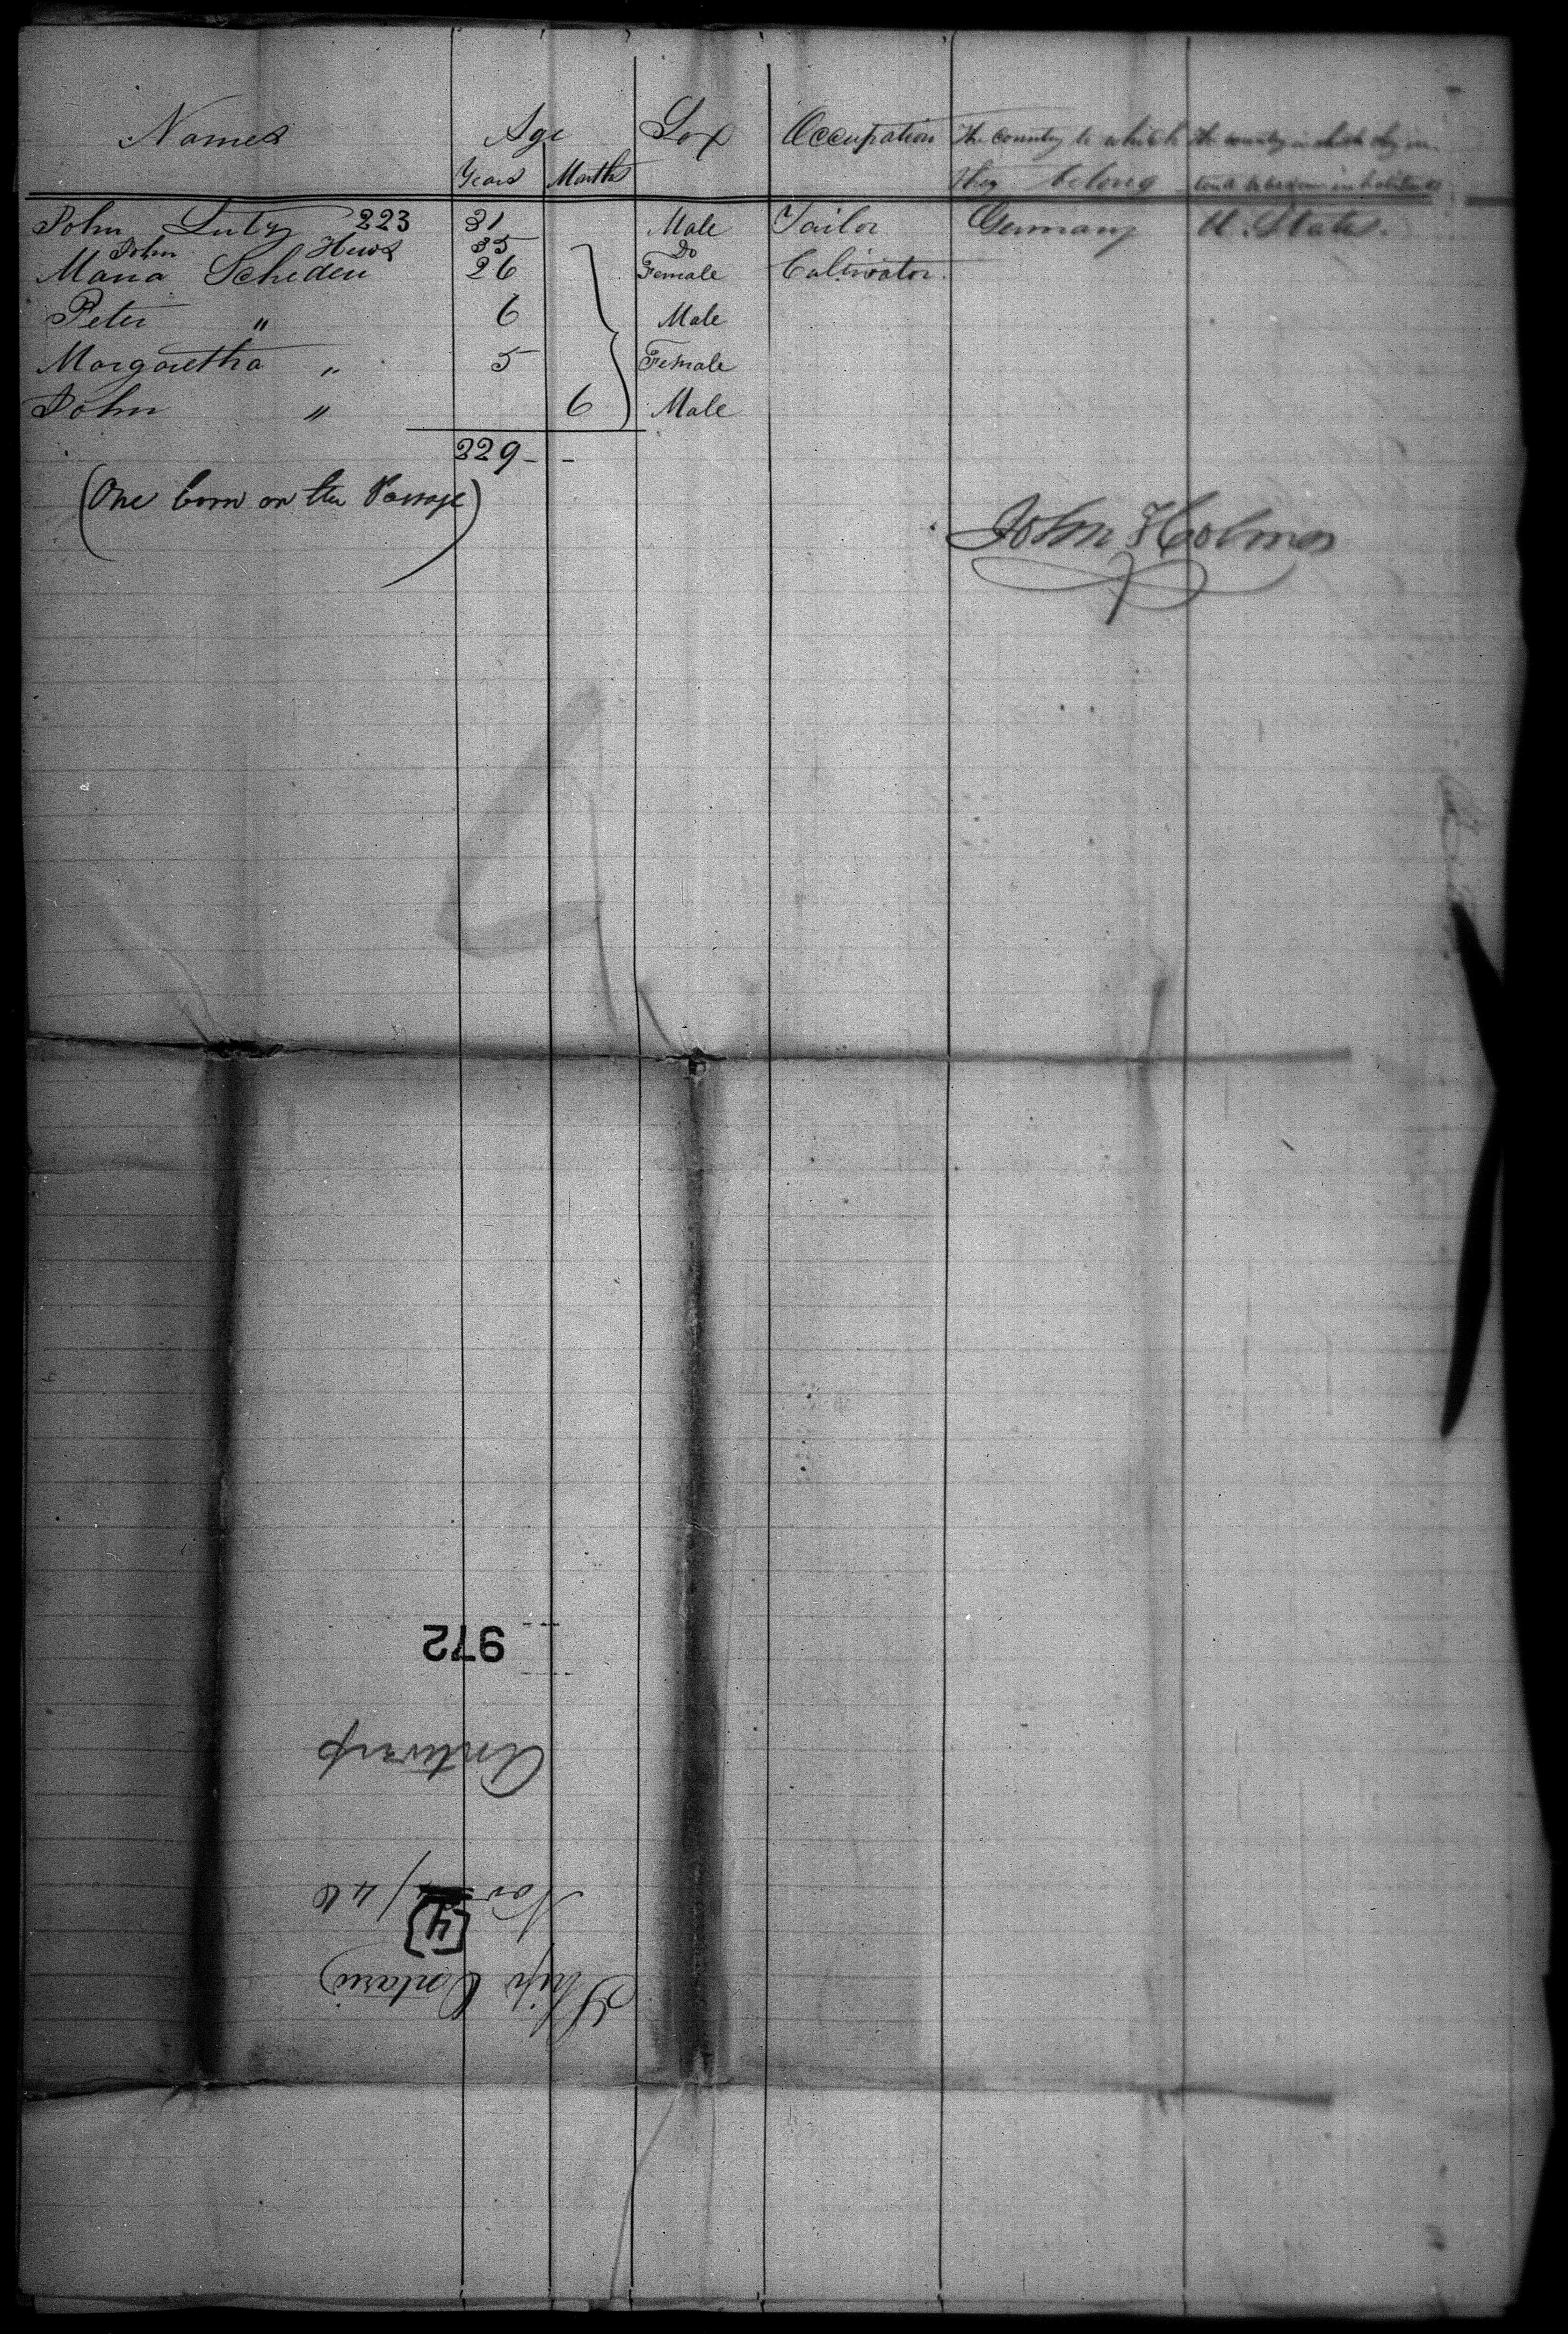 Names Age Sex Occupation The Country to which the country in which they in-
Years Months they belong tend to become inhabitants
John Lutz 223 31 Male Tailor Germany U. States.
John Hews 35 Do
Maria Scheden 26 Female Cultivator.
Peter " 6 Male
Margaretha " 5 Female
John " 6 Male
229 - -
(One born on the Passage)
John Holmes
972
Antwerp
Nov /46
[4]
Ship Ontario